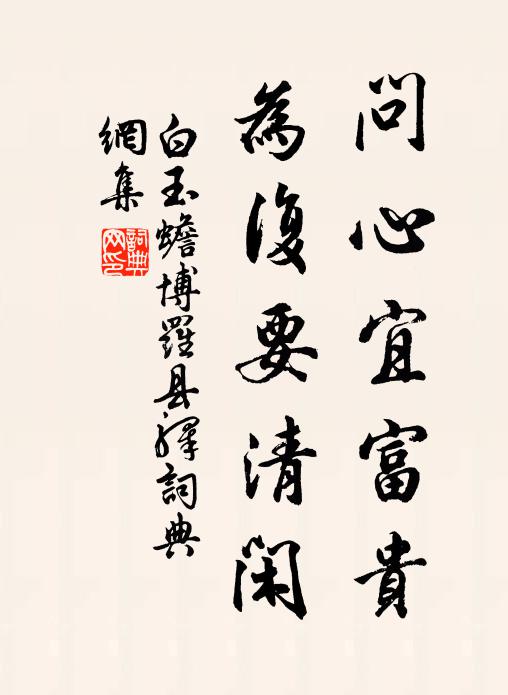 問心宜富貴
為復要清閑
白玉蟾博羅县驛詞典
網集
詞典
网印